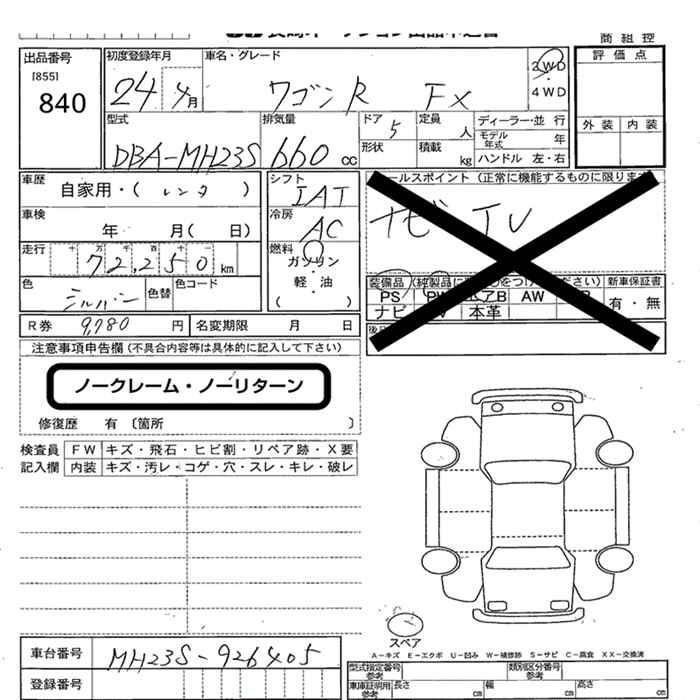 商組控
出品番号
[855]
840
初度登録年月
24年4月
車名・グレード
ワゴンR FX
2WD
4WD
評価点
外装 内装
型式
DBA-MH23S
排気量
660cc
ドア 5
形状
定員 人
積載 kg
ディーラー・並行
モデル年式 年
ハンドル 左・右
車歴
自家用・(レンタ)
車検
年 月( 日)
走行
十 万 千 百 十 一
72,250km
色
シルバー
色替
色コード
シフト
IAT
冷房
AC
燃料
ガソリン
・
軽油
( )
セールスポイント (正常に機能するものに限ります)
ナビ TV
装備品
新車保証書
PS PW エアB AW
ナビ 本革
有・無
R券 9,780円 名変期限 月 日
注意事項申告欄 (不具合内容等は具体的に記入して下さい)
ノークレーム・ノーリターン
修復歴 有 〔箇所 〕
検査員記入欄
FW キズ・飛石・ヒビ割・リペア跡・X要
内装 キズ・汚レ・コゲ・穴・スレ・キレ・破レ
スペア
A-キズ E-エクボ U-凹み W-補修跡 S-サビ C-腐食 XX-交換済
車台番号 MH23S-926405
登録番号
型式指定番号 参考
類別区分番号 参考
車庫証明用 参考 長さ cm 幅 cm 高さ cm